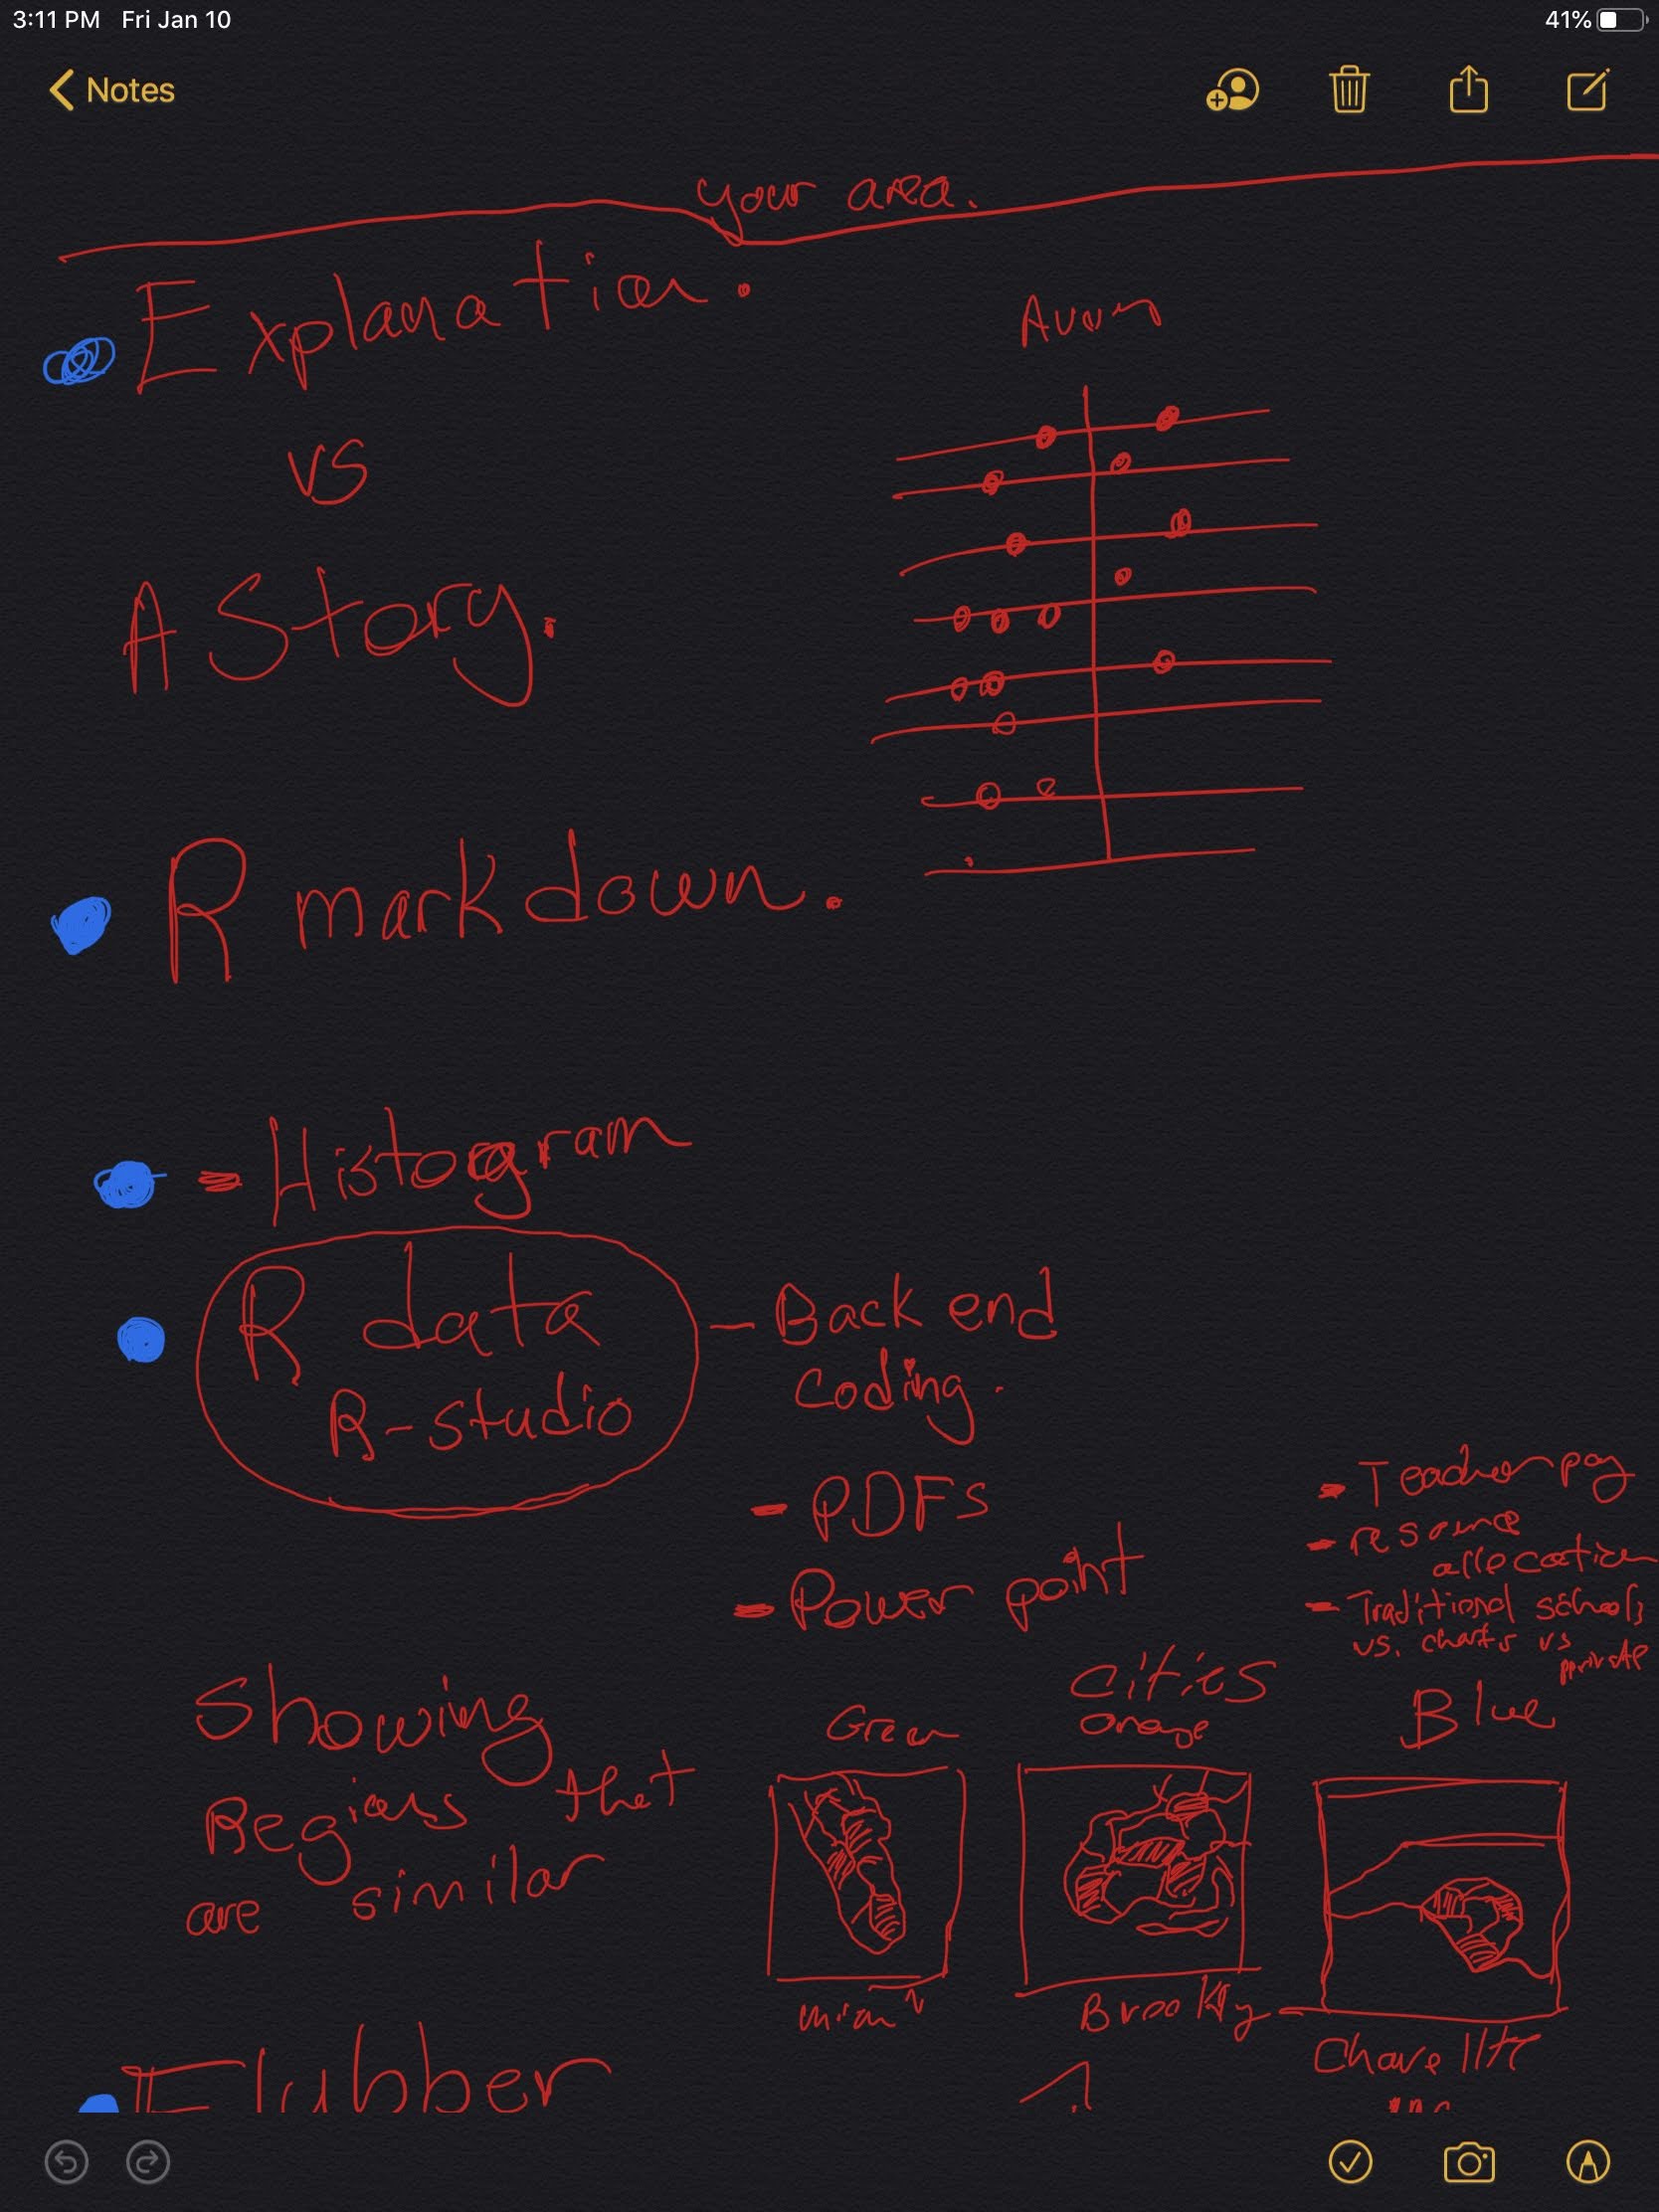 3:11 PM Fri Jan 10
41%
Notes
your area.
Explanation.
vs
A Story.
R markdown.
- Histogram
R data
R-studio
- Back end
coding.
- PDFs
- Power point
- Teacher pay
- resource
allocation
- Traditional schools
vs. vs
private
Showing
Regions that
are similar
Cities
Green
Orange
Blue
Miami
Brooklyn
Flubber